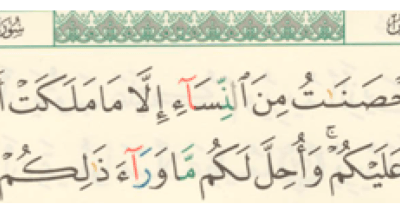 حْصَنَـٰتُ مِنَ ٱلنِّسَآءِ إِلَّا مَا مَلَكَتْ أَ
عَلَيْكُمْ ۚ وَأُحِلَّ لَكُم مَّا وَرَآءَ ذَٰلِكُمْ